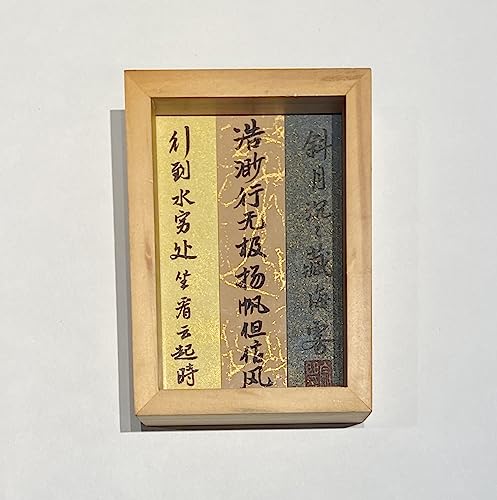 斜月沉々藏海雾
浩渺行无极扬帆但信风
行到水穷处坐看云起時